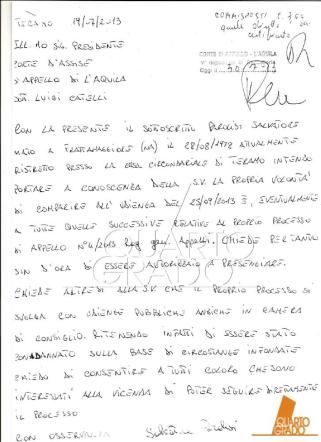 TERAMO 19/07/2013
ILL.MO SIG. PRESIDENTE
CORTE D'ASSISE
D'APPELLO DI L'AQUILA
DOTT. LUIGI CATELLI
CORTE D'APPELLO - L'AQUILA
CON LA PRESENTE IL SOTTOSCRITTO PAROLISI SALVATORE
NATO A FRATTAMAGGIORE (NA) IL 28/08/1978 ATTUALMENTE
RISTRETTO PRESSO LA CASA CIRCONDARIALE DI TERAMO INTENDO
PORTARE A CONOSCENZA DELLA S.V. LA PROPRIA VOLONTA'
DI COMPARIRE ALL'UDIENZA DEL 25/09/2013 E, EVENTUALMENTE
A TUTTE QUELLE SUCCESSIVE RELATIVE AL PROPRIO PROCESSO
DI APPELLO N°4/2013 Reg. gen. Appelli. CHIEDE PERTANTO
SIN D'ORA DI ESSERE AUTORIZZATO A PRESENZIARE.
CHIEDE ALTRESI ALLA S.V. CHE IL PROPRIO PROCESSO SI
SVOLGA CON UDIENZE PUBBLICHE ANZICHE IN CAMERA
DI CONSIGLIO. RITENENDO INFATTI DI ESSERE STATO
CONDANNATO SULLA BASE DI CIRCOSTANZE INFONDATE
CHIEDO DI CONSENTIRE A TUTTI COLORO CHE SONO
INTERESSATI ALLA VICENDA DI POTER SEGUIRE DIRETTAMENTE
IL PROCESSO
CON OSSERVANZA Salvatore Parolisi
QUARTO
GRADO
QUARTO
GRADO